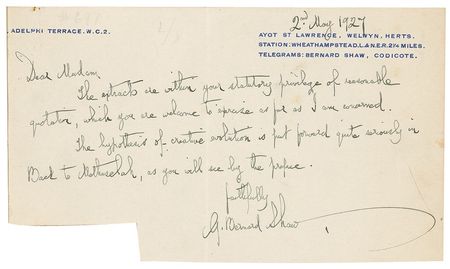 2nd May 1927
ADELPHI TERRACE. W.C.2.
AYOT ST LAWRENCE, WELWYN, HERTS.
STATION: WHEATHAMPSTEAD, L.& N.E.R. 2¼ MILES.
TELEGRAMS: BERNARD SHAW, CODICOTE.
Dear Madam
The extracts are within your statutory privilege of reasonable
quotation, which you are welcome to exercise as far as I am concerned.
The hypothesis of creative evolution is put forward quite seriously in
Back to Methuselah, as you will see by the preface.
faithfully
G. Bernard Shaw